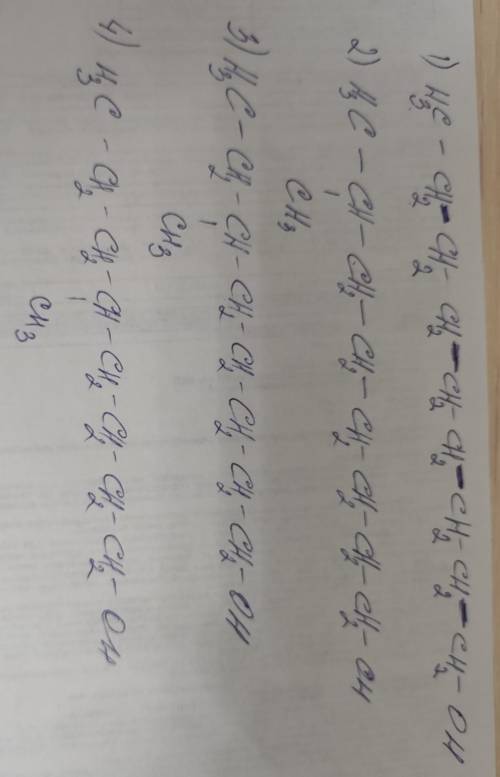 1) H₃C – CH₂ – CH₂ – CH₂ – CH₂ – CH₂ – CH₂ – CH₂ – CH₂ – OH
2) H₃C – CH – CH₂ – CH₂ – CH₂ – CH₂ – CH₂ – CH₂ – OH
CH₃
3) H₃C – CH₂ – CH – CH₂ – CH₂ – CH₂ – CH₂ – CH₂ – OH
CH₃
4) H₃C – CH₂ – CH₂ – CH – CH₂ – CH₂ – CH₂ – CH₂ – OH
CH₃